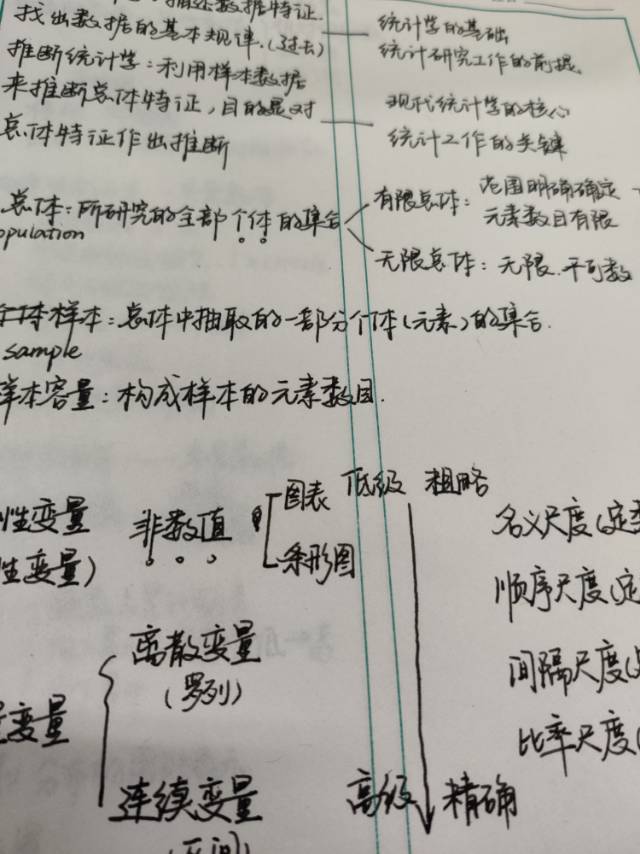 找出数据的基本规律.(过去)
统计学的基础
统计研究工作的前提.
推断统计学:利用样本数据
来推断总体特征,目的是对
总体特征作出推断
现代统计学的核心
统计工作的关键
总体:所研究的全部个体的集合
opulation
有限总体:范围明确确定
元素数目有限
无限总体:无限.不可数
样本:总体中抽取的一部分个体(元素)的集合.
sample
样本容量:构成样本的元素数目.
性变量
性变量)
非数值
图表
条形图
低级 粗略
高级 精确
名义尺度(定
顺序尺度(定
间隔尺度(
比率尺度(
变量
离散变量
(罗列)
连续变量